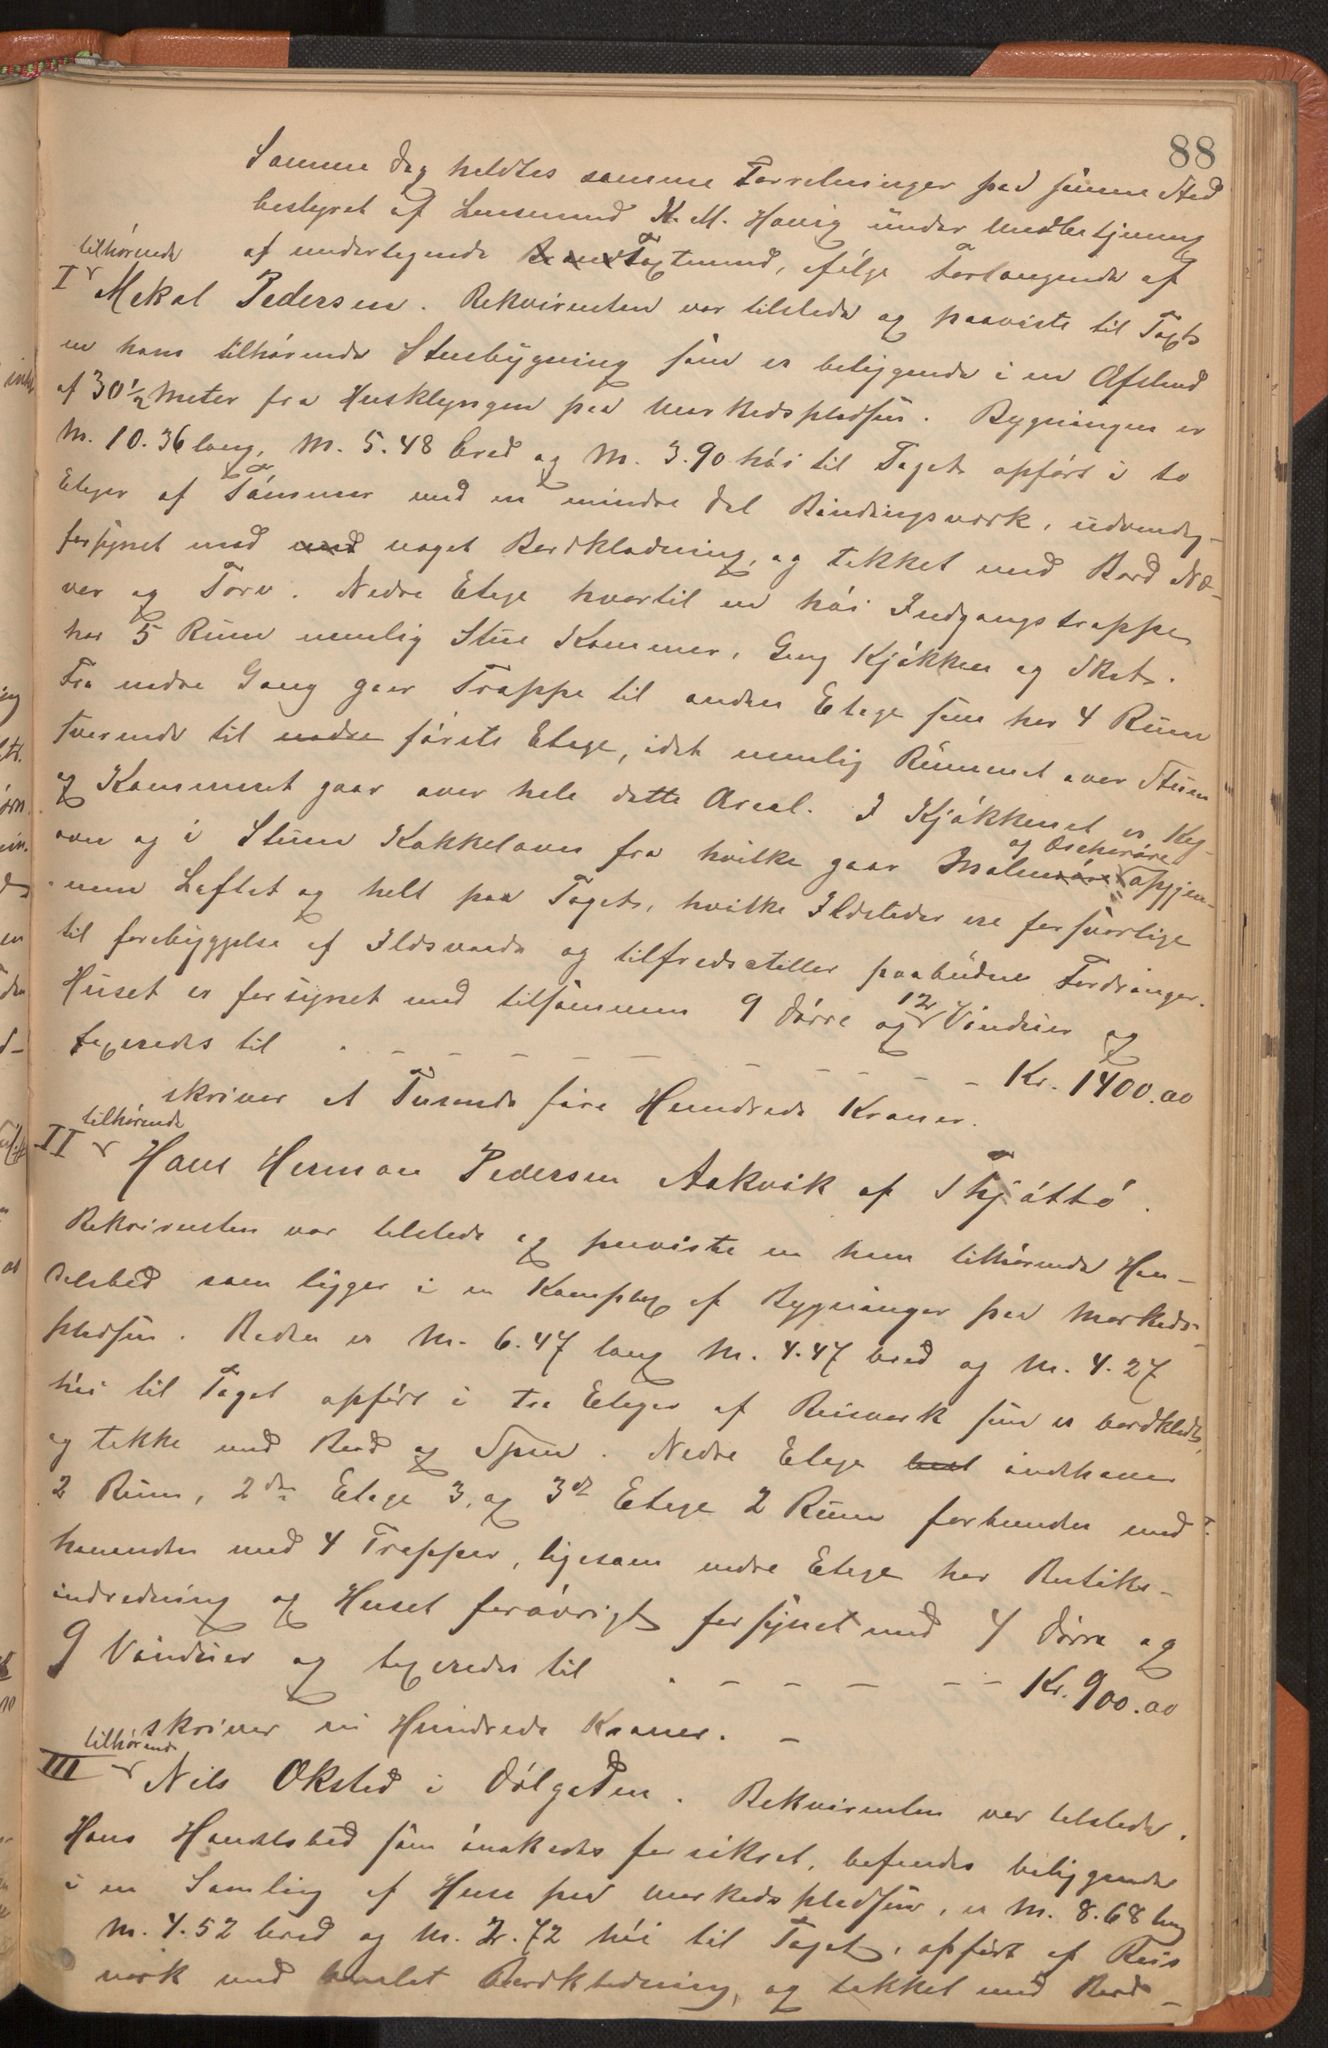 88
Samme Dag holdtes samme Forretninger paa samme Sted
bestyret af Lensmand K. M. Havig under Medbetjening
af undertegnede Taxtmænd, ifølge Forlangende af
tilhørende
I Mekal Pedersen. Rekvirenten var tilstede og paaviste til Taxt
en ham tilhørende Stuebygning som er beliggende i en Afstand
af 30 1/2 Meter fra Husklyngen paa Markedspladsen. Bygningen er
M. 10.36 lang, M. 5.48 bred og M. 3.90 høi til Taget opført i to
Etager af Tømmer med en mindre Del Bindingsværk, udvendig
forsynet med med noget Bordklædning, og tekket med Bord Næ-
ver og Torv. Nedre Etage hvortil en høi Indgangstrappe
har 5 Rum nemlig Stue Kammer, Gang Kjøkken og Skot.
Fra nedre Gang gaar Trappe til anden Etage som har 4 Rum
svarende til nedre første Etage, idet nemlig Rummet over Stuen
og Kammeret gaar over hele dette Areal. I Kjøkkenet er Kog-
ovn og i Stuen Kakkelovn fra hvilke gaar opgjen-
og
nem Loftet og helt paa Taget, hvilke Ildsteder ere forsvarlige
til forebyggelse af Ildsvaade og tilfredsstiller paabudne Fordringer.
Huset er forsynet med tilsammen 9 Dørre og 12 Vinduer og
taxeredes til . - - - - - - - - - - - Kr. 1400.00
skriver et Tusende fire Hundrede Kroner.
tilhørende
II Hans Herman Pedersen Aakvik af Thjøttø.
Rekvirenten var tilstede og paaviste en ham tilhørende Han-
delsbod som ligger i en Komplex af Bygninger paa Markeds-
pladsen. Boden er M. 6.47 lang M. 4.47 bred og M. 4.27
høi til Taget opført i tre Etager af Reisverk som er bordklædt,
og tekke med Bord og Spon. Nedre Etage indhaver
2 Rum, 2den Etage 3, og 3die Etage 2 Rum forbunden med
hverandre med 4 Trapper, ligesom nedre Etage har Butiks-
indredning og Huset forøvrigt forsynet med 4 Dørre og
9 Vinduer og taxeredes til . - - - - - - Kr. 900.00
skriver ni Hundrede Kroner. -
tilhørende
III Nils Oksted i Dølgaden. Rekvirenten var tilstede.
Hans Handelsbod som ønskedes forsikret, befandtes beliggende
i en Samling af Huse paa Markedspladsen, er M. 8.68 lang
M. 4.52 bred og M. 2.72 høi til Taget, opført af Reis
verk med Bordklædning, og tekket med Bord-